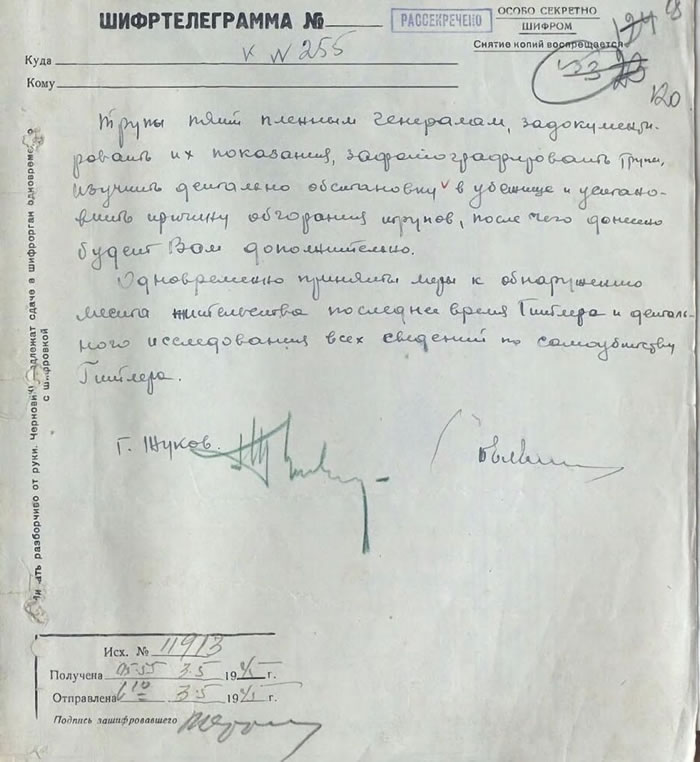 ШИФРТЕЛЕГРАММА №
К N 255
РАССЕКРЕЧЕНО
ОСОБО СЕКРЕТНО
ШИФРОМ
Снятие копий воспрещается
120
Куда
Кому
Трупы пяти пленным генералам, задокументи-
ровать их показания, зафотографировать трупы,
изучить детально обстановку в убежище и устано-
вить причину обгорания трупов, после чего донесено
будет Вам дополнительно.
Одновременно приняты меры к обнаружению
места жительства последнее время Гитлера и деталь-
ного исследования всех сведений по самоубийству
Гитлера.
Г. Жуков.
разборчиво от руки. Черновики
сдаче в шифрорган одновременно
с шифровкой
Исх. № 11913
Получена 05-55 3.5 1945 г.
Отправлена 6 10 3.5 1945 г.
Подпись зашифровавшего